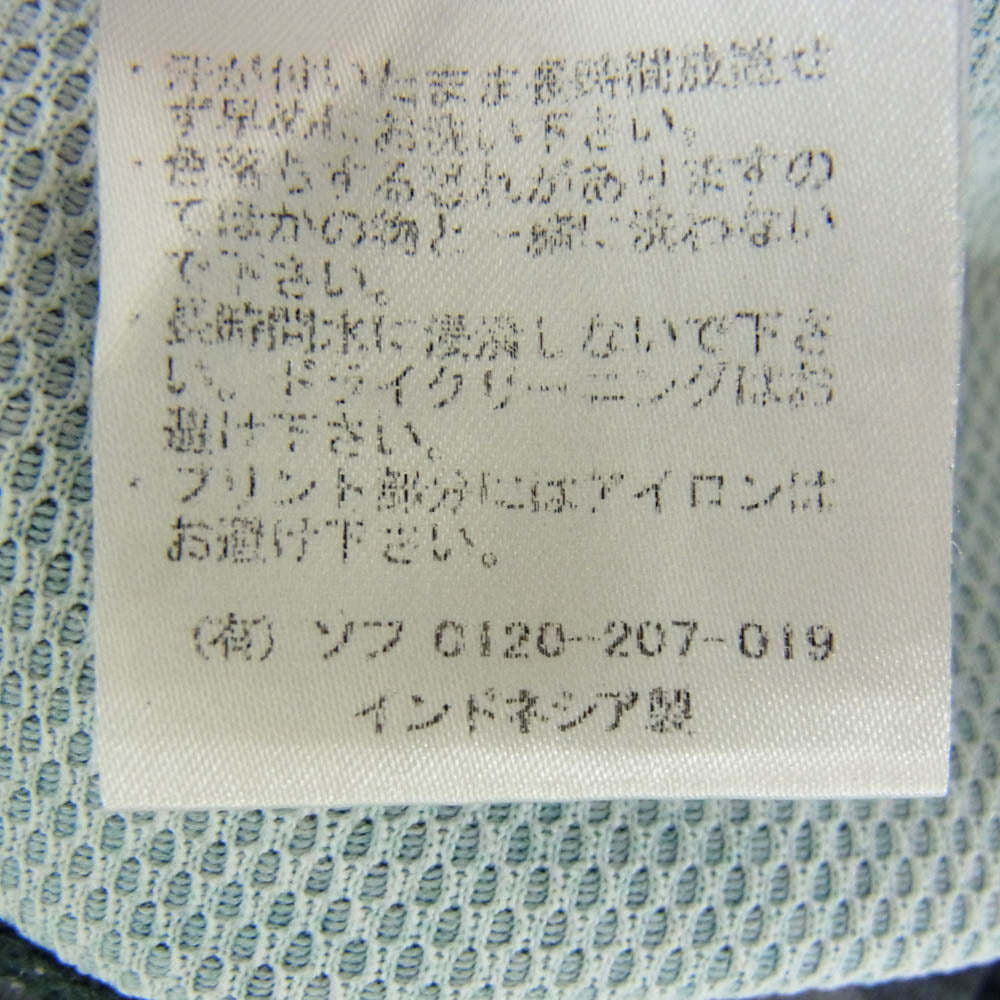 ・汗が付いたまま長時間放置せ
ず早めにお洗い下さい。
・色落らする恐れがありますの
でほかの物と一緒に洗わない
で下さい。
・長時間水に浸漬しないで下さ
い。ドライクリーニングはお
避け下さい。
・プリント部分にはアイロンは
お避け下さい。
(有) ソフ 0120-207-019
インドネシア製